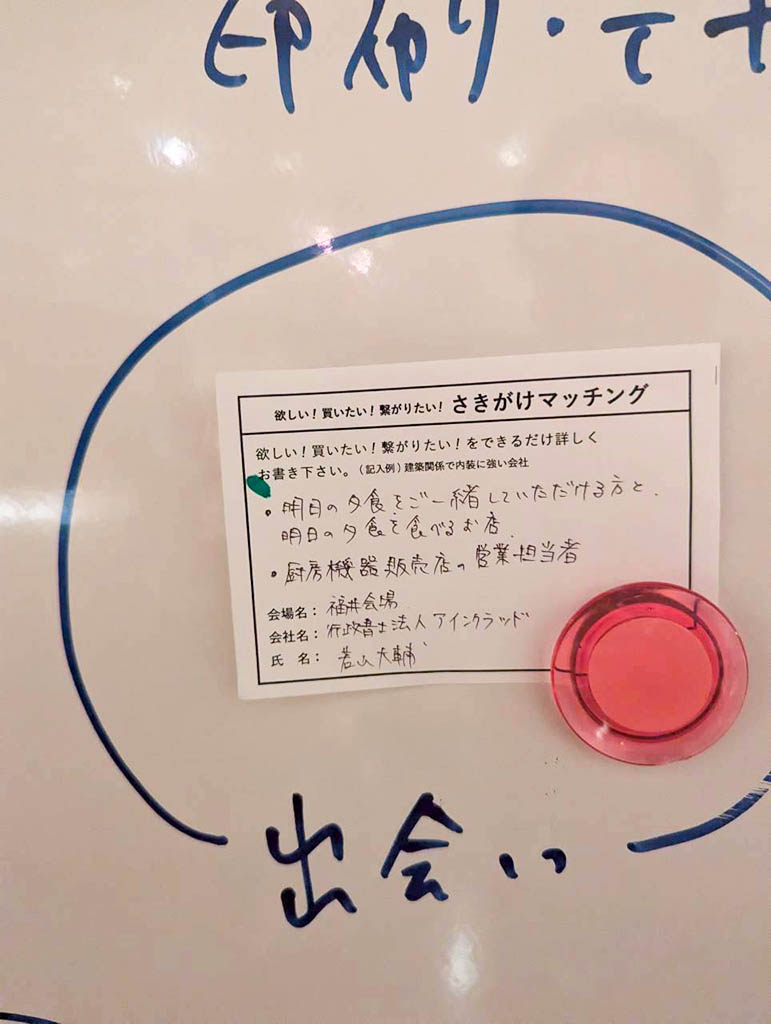 印刷・デザ
欲しい！買いたい！繋がりたい！ さきがけマッチング
欲しい！買いたい！繋がりたい！をできるだけ詳しく
お書き下さい。（記入例）建築関係で内装に強い会社
・明日の夕食をご一緒していただける方と、
明日の夕食を食べるお店。
・厨房機器販売店の営業担当者
会場名： 福井会場
会社名： 行政書士法人アインクラッド
氏 名： 若山大輔
出会い